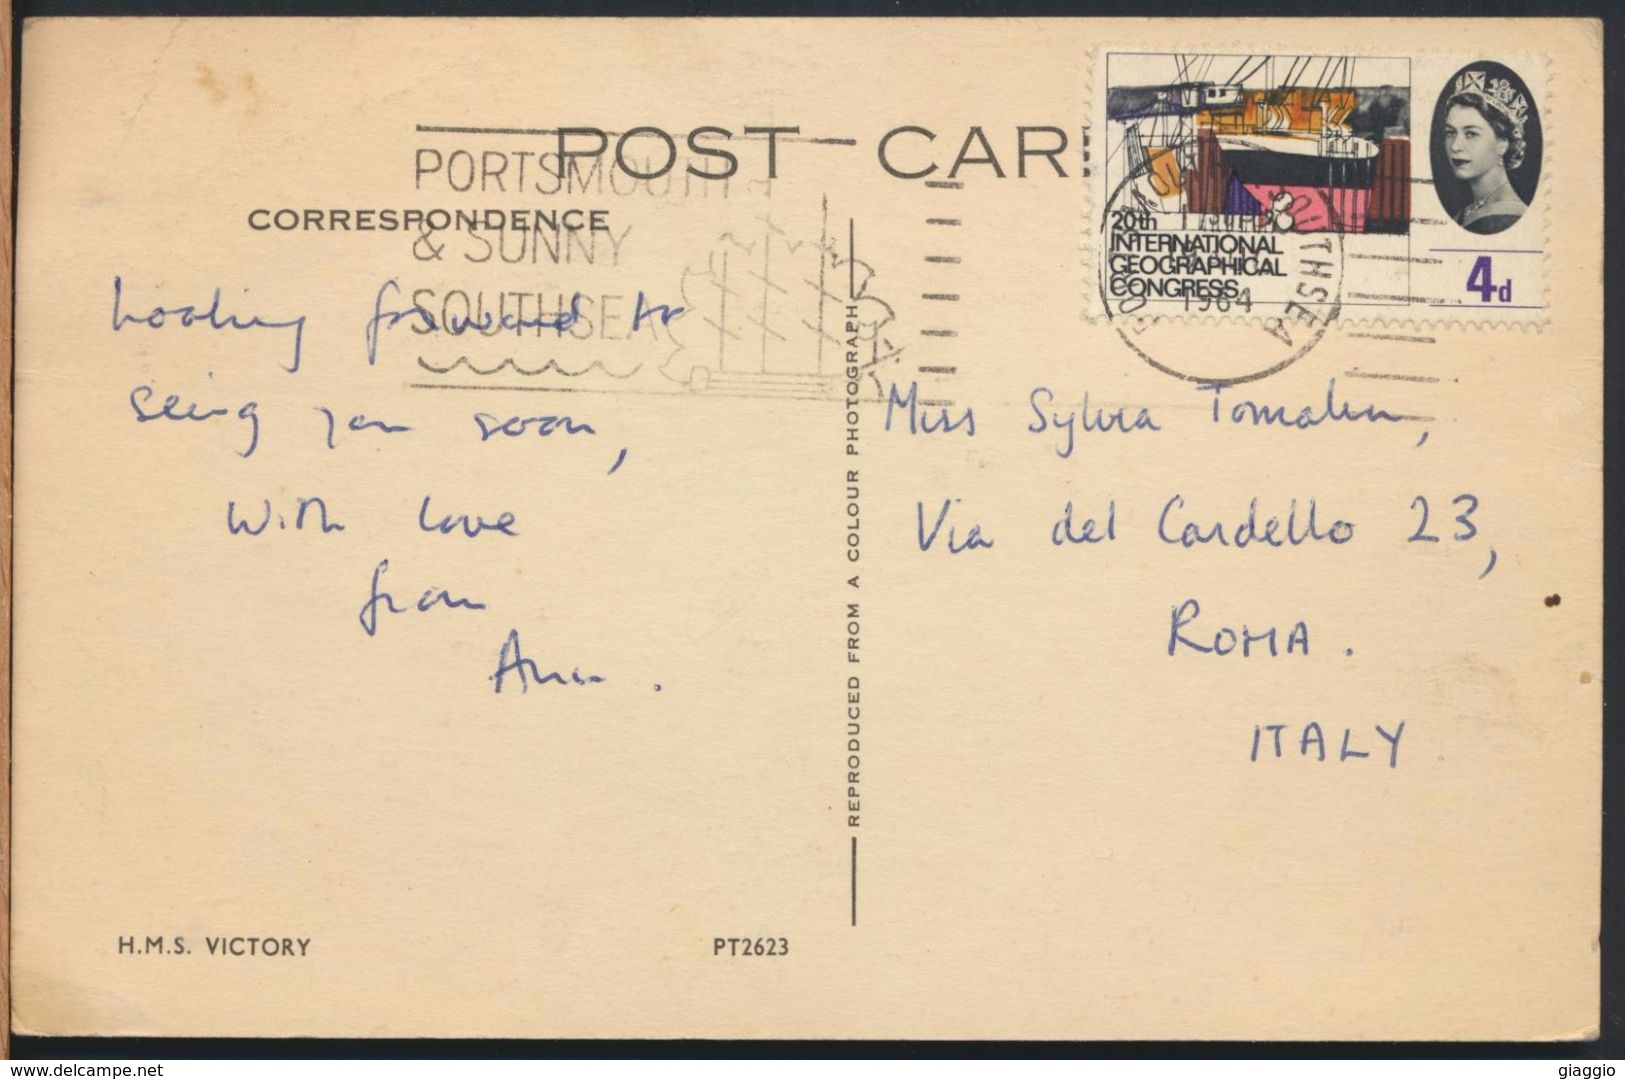 POST CAR
PORTSMOUTH
& SUNNY
SOUTHSEA
CORRESPONDENCE
20th
INTERNATIONAL
GEOGRAPHICAL
CONGRESS
4d
SOUTHSEA
1964
Looking forward to
seeing you soon,
With love
from
Ann.
REPRODUCED FROM A COLOUR PHOTOGRAPH
Miss Sylvia Tomalin,
Via del Cardello 23,
ROMA.
ITALY.
H.M.S. VICTORY
PT2623
www.delcampe.net
giaggio